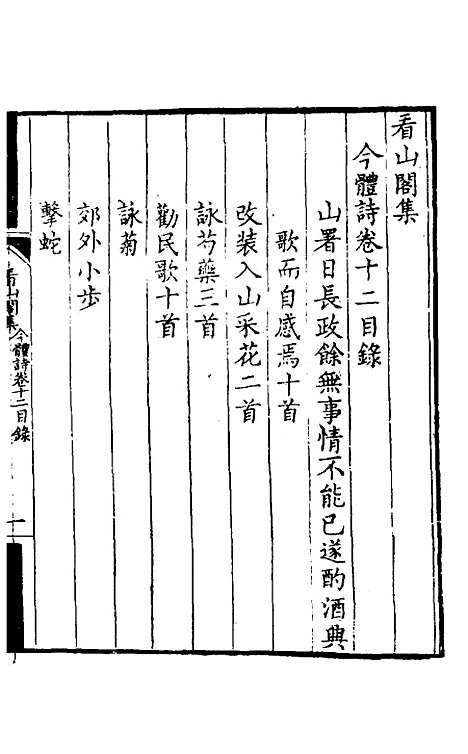 看山閣集
今體詩卷十二目錄
山署日長政餘無事情不能已遂酌酒典
歌而自感焉十首
改装入山采花二首
詠芍藥三首
勸民歌十首
詠菊
郊外小步
擊蛇
看山閣集 今體詩卷十二目錄 一